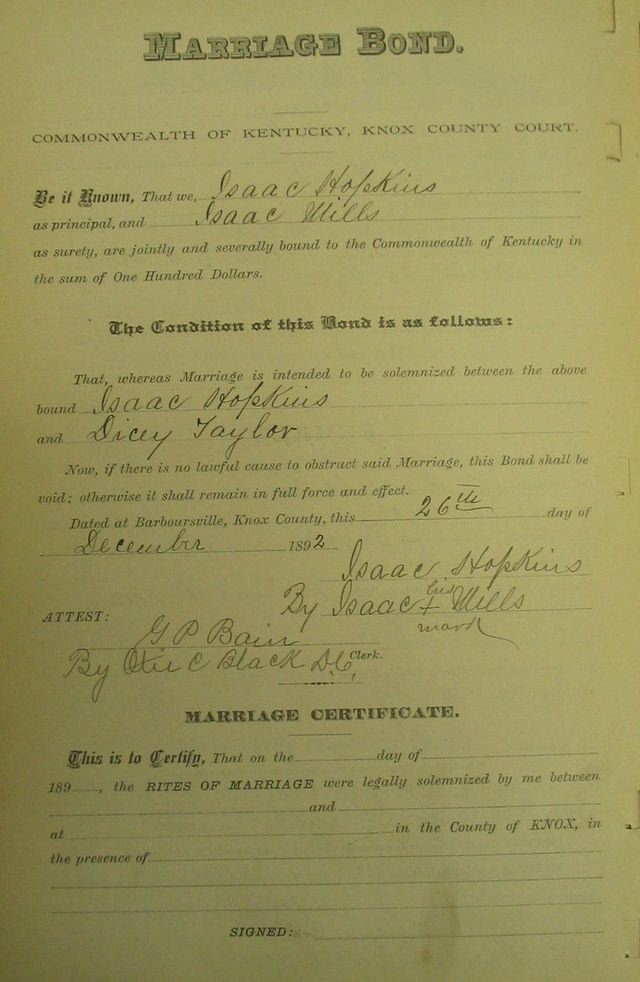 MARRIAGE BOND.
COMMONWEALTH OF KENTUCKY, KNOX COUNTY COURT.
Be it Known, That we, Isaac Hopkins
as principal, and Isaac Mills
as surety, are jointly and severally bound to the Commonwealth of Kentucky in
the sum of One Hundred Dollars.
The Condition of this Bond is as follows:
That, whereas Marriage is intended to be solemnized between the above
bound Isaac Hopkins
and Dicey Taylor
Now, if there is no lawful cause to obstruct said Marriage, this Bond shall be
void; otherwise it shall remain in full force and effect.
Dated at Barboursville, Knox County, this 26th day of
December 1892
Isaac Hopkins
By Isaac his x mark Mills
ATTEST:
G P Bain
By Otis C Black D.C. Clerk.
MARRIAGE CERTIFICATE.
This is to Certify, That on the day of
189 , the RITES OF MARRIAGE were legally solemnized by me between
and
at in the County of KNOX, in
the presence of
SIGNED: